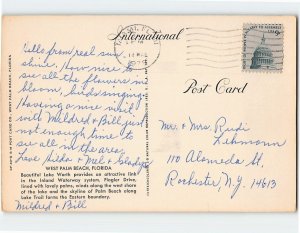 International
Post Card
Hello from real sun
shine. How nice to
see all the flowers in
bloom, birds singing.
Having a nice visit
with Mildred & Bill, just
not enough time to
see all in the area.
Love Hilda & Mel & Gladys
WEST PALM BEACH, FLORIDA
Beautiful Lake Worth provides an attractive link
in the Inland Waterway system. Flagler Drive,
lined with lovely palms, winds along the west shore
of the lake and the skyline of Palm Beach along
Lake Trail forms the Eastern boundary.
Mildred & Bill
Mr. & Mrs. Rudi
Lehmann
110 Alameda St.
Rochester, N.Y. 14613